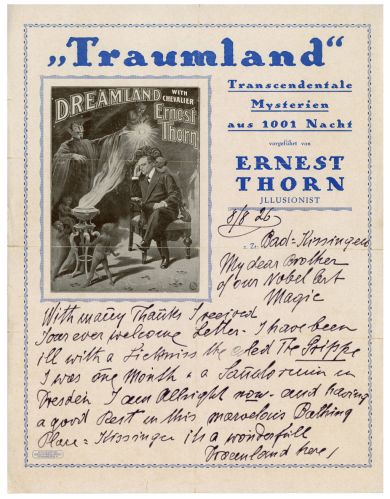 „Traumland“
Transcendentale
Mysterien
aus 1001 Nacht
vorgeführt von
ERNEST
THORN
JLLUSIONIST
DREAMLAND
WITH
CHEVALIER
Ernest
Thorn
8/8 26
z. Zt. Bad=Kissingen
My dear Brother
of our Nobel Art
Magic
With many Thanks I received
Your ever welcome Letter - I have been
ill with a Sickniss the called The Grippe
I was one Month a Sanatorium in
Dresden I am Allright now - and having
a good Rest in this marvelous Bathing
Place = Kissingen is a wonderfull
Dreamland here,